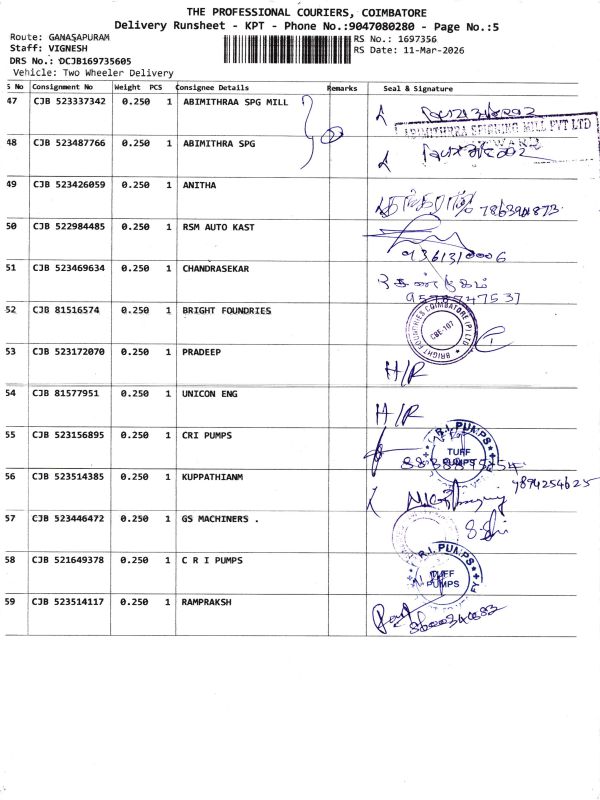 THE PROFESSIONAL COURIERS, COIMBATORE
Delivery Runsheet - KPT - Phone No.:9047080280 - Page No.:5
Route: GANASAPURAM
RS No.: 1697356
Staff: VIGNESH
RS Date: 11-Mar-2026
DRS No.: DCJB169735605
Vehicle: Two Wheeler Delivery
S No Consignment No Weight PCS Consignee Details Remarks Seal & Signature
47 CJB 523337342 0.250 1 ABIMITHRAA SPG MILL
48 CJB 523487766 0.250 1 ABIMITHRAA SPG
49 CJB 523426059 0.250 1 ANITHA
50 CJB 522984485 0.250 1 RSM AUTO KAST
9361310006
51 CJB 523469634 0.250 1 CHANDRASEKAR
52 CJB 81516574 0.250 1 BRIGHT FOUNDRIES
BRIGHT FOUNDRIES COIMBATORE (P) LTD
CBE-107
53 CJB 523172070 0.250 1 PRADEEP
H/R
54 CJB 81577951 0.250 1 UNICON ENG
H/R
55 CJB 523156895 0.250 1 CRI PUMPS
R.I. PUMPS
TUFF
PUMPS
56 CJB 523514385 0.250 1 KUPPATHIANM
7894254625
57 CJB 523446472 0.250 1 GS MACHINERS .
58 CJB 521649378 0.250 1 C R I PUMPS
R.I. PUMPS
TUFF
PUMPS
59 CJB 523514117 0.250 1 RAMPRAKSH